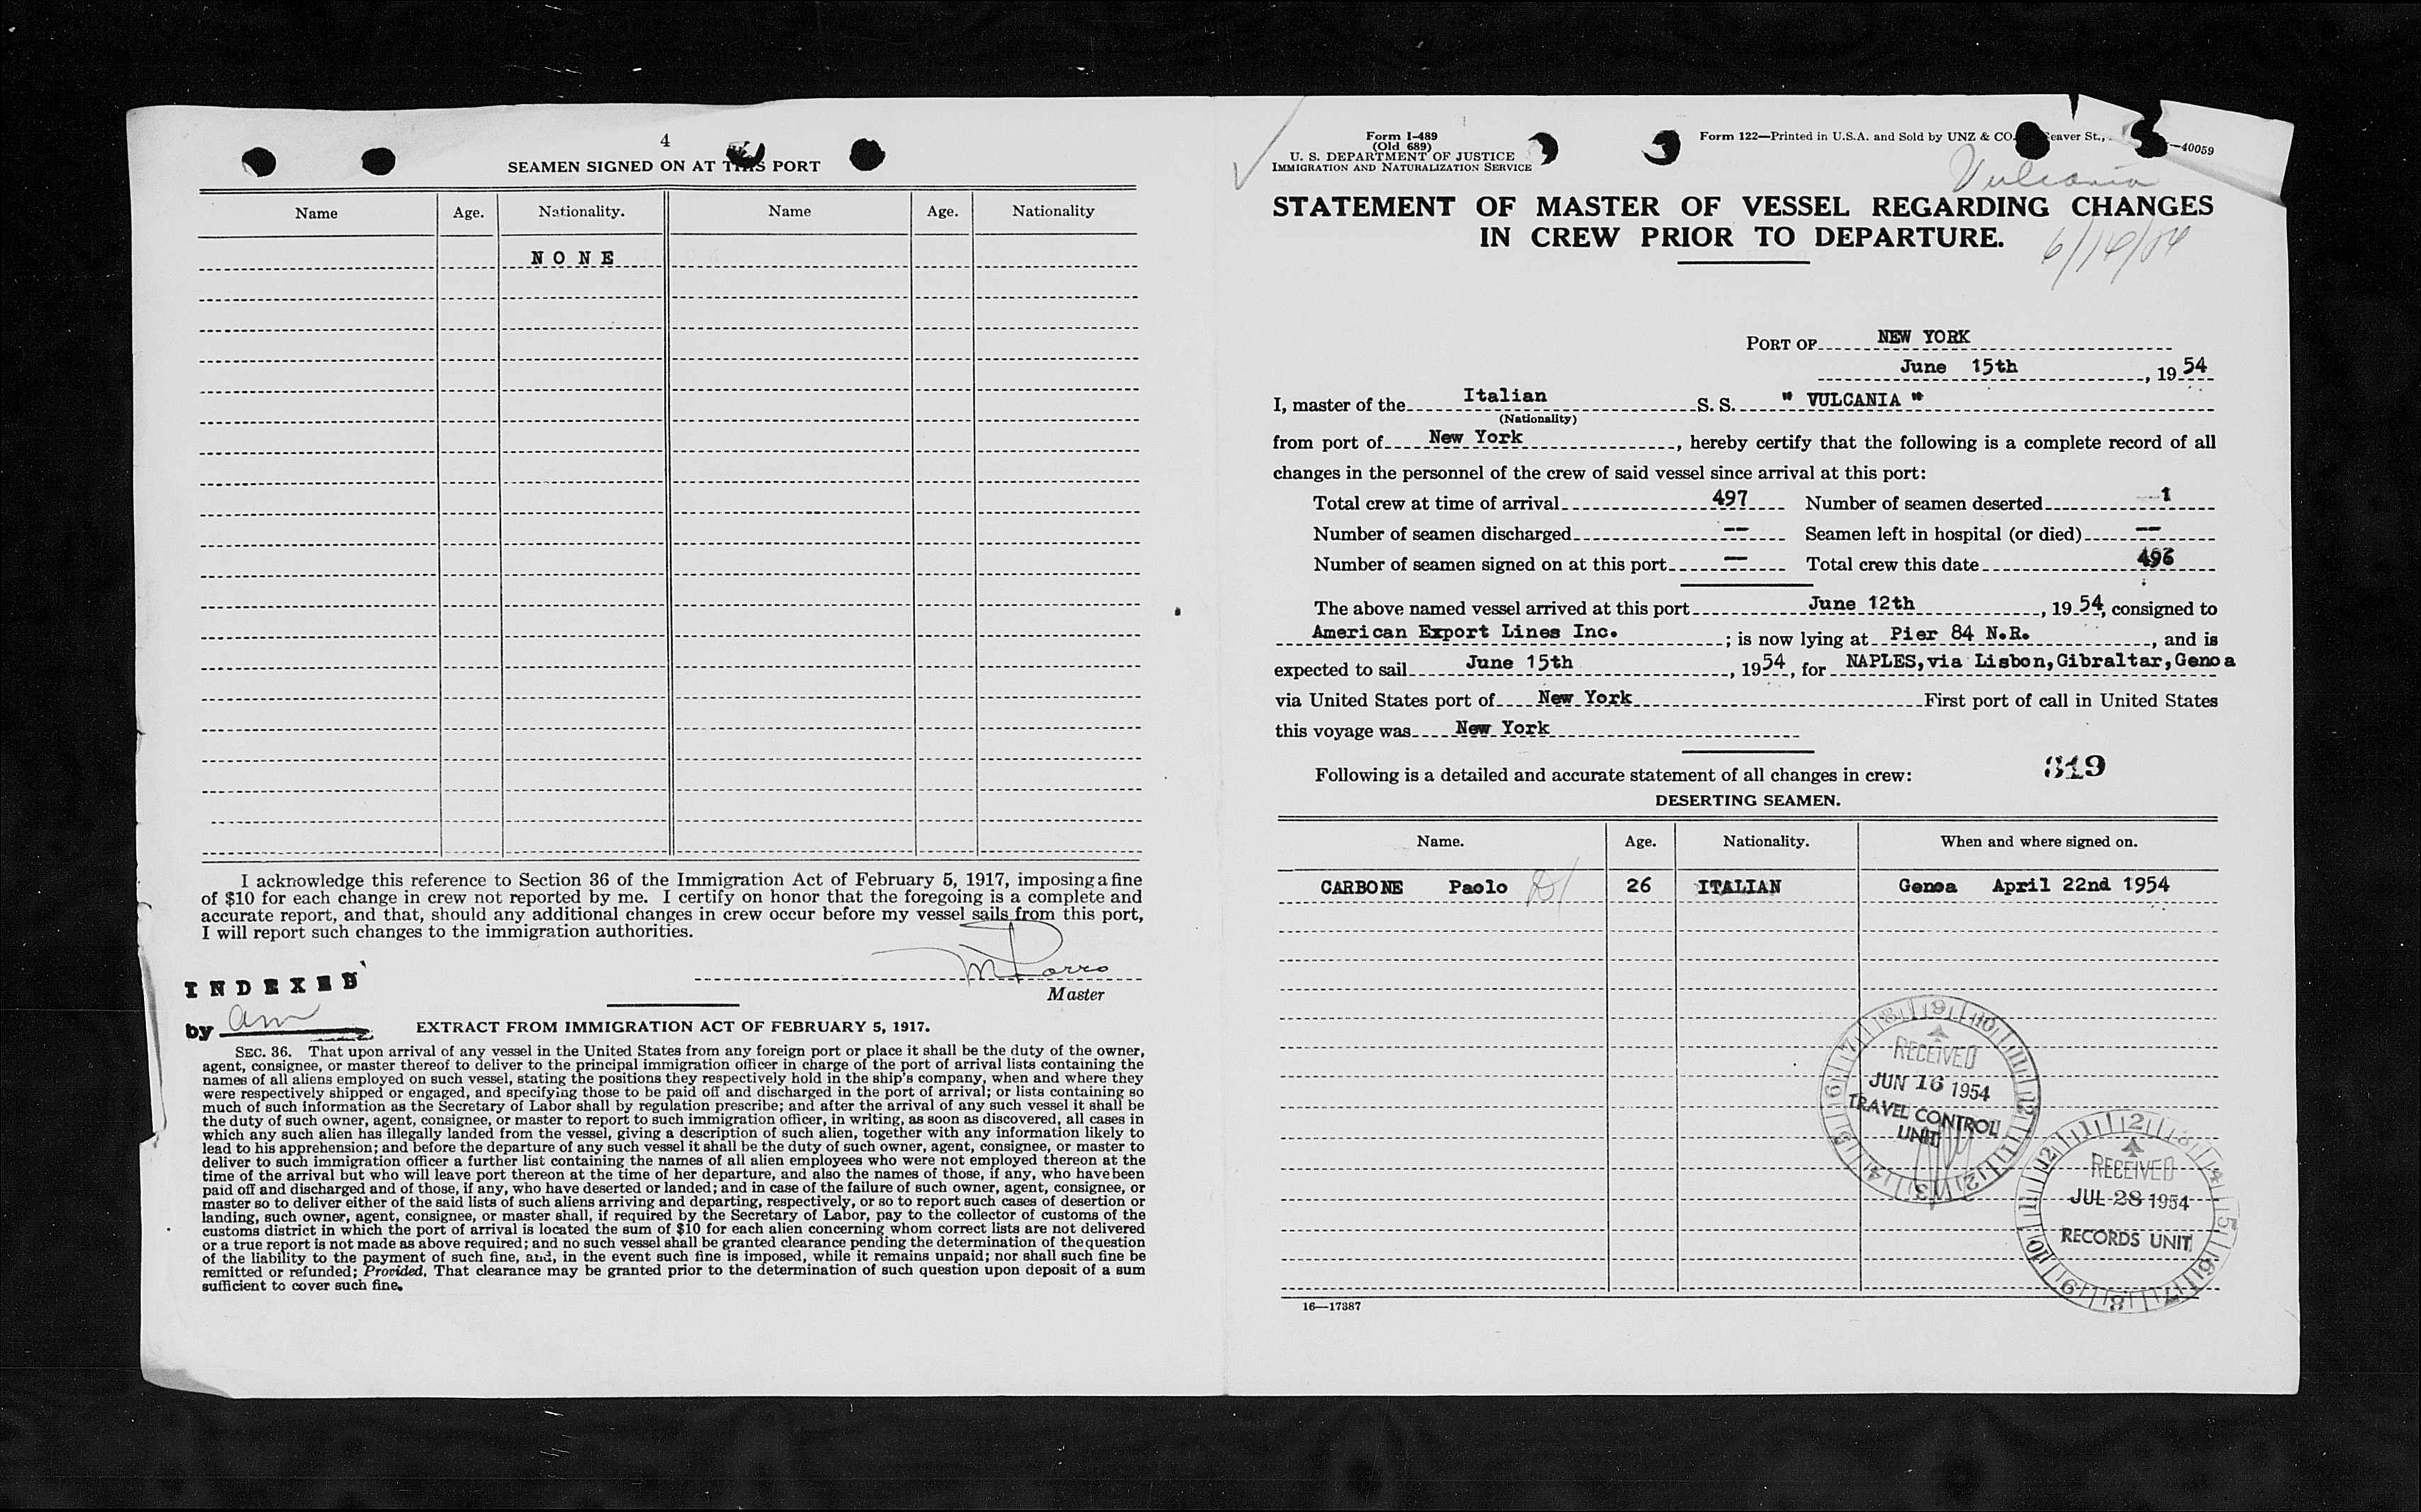 4
SEAMEN SIGNED ON AT THIS PORT
Name Age. Nationality. Name Age. Nationality
NONE
I acknowledge this reference to Section 36 of the Immigration Act of February 5, 1917, imposing a fine
of $10 for each change in crew not reported by me. I certify on honor that the foregoing is a complete and
accurate report, and that, should any additional changes in crew occur before my vessel sails from this port,
I will report such changes to the immigration authorities.
Master
INDEXED
by am
EXTRACT FROM IMMIGRATION ACT OF FEBRUARY 5, 1917.
SEC. 36. That upon arrival of any vessel in the United States from any foreign port or place it shall be the duty of the owner,
agent, consignee, or master thereof to deliver to the principal immigration officer in charge of the port of arrival lists containing the
names of all aliens employed on such vessel, stating the positions they respectively hold in the ship's company, when and where they
were respectively shipped or engaged, and specifying those to be paid off and discharged in the port of arrival; or lists containing so
much of such information as the Secretary of Labor shall by regulation prescribe; and after the arrival of any such vessel it shall be
the duty of such owner, agent, consignee, or master to report to such immigration officer, in writing, as soon as discovered, all cases in
which any such alien has illegally landed from the vessel, giving a description of such alien, together with any information likely to
lead to his apprehension; and before the departure of any such vessel it shall be the duty of such owner, agent, consignee, or master to
deliver to such immigration officer a further list containing the names of all alien employees who were not employed thereon at the
time of the arrival but who will leave port thereon at the time of her departure, and also the names of those, if any, who have been
paid off and discharged and of those, if any, who have deserted or landed; and in case of the failure of such owner, agent, consignee, or
master so to deliver either of the said lists of such aliens arriving and departing, respectively, or so to report such cases of desertion or
landing, such owner, agent, consignee, or master shall, if required by the Secretary of Labor, pay to the collector of customs of the
customs district in which the port of arrival is located the sum of $10 for each alien concerning whom correct lists are not delivered
or a true report is not made as above required; and no such vessel shall be granted clearance pending the determination of the question
of the liability to the payment of such fine, and, in the event such fine is imposed, while it remains unpaid; nor shall such fine be
remitted or refunded; Provided, That clearance may be granted prior to the determination of such question upon deposit of a sum
sufficient to cover such fine.
Form I-489
(Old 689)
U. S. DEPARTMENT OF JUSTICE
IMMIGRATION AND NATURALIZATION SERVICE
Form 122—Printed in U.S.A. and Sold by UNZ & CO. eaver St., —40059
Vulcania
STATEMENT OF MASTER OF VESSEL REGARDING CHANGES
IN CREW PRIOR TO DEPARTURE.
PORT OF NEW YORK
June 15th, 1954
I, master of the Italian S. S. " VULCANIA "
(Nationality)
from port of New York, hereby certify that the following is a complete record of all
changes in the personnel of the crew of said vessel since arrival at this port:
Total crew at time of arrival 497 Number of seamen deserted 1
Number of seamen discharged -- Seamen left in hospital (or died) --
Number of seamen signed on at this port -- Total crew this date 496
The above named vessel arrived at this port June 12th, 1954, consigned to
American Export Lines Inc.; is now lying at Pier 84 N.R., and is
expected to sail June 15th, 1954, for NAPLES,via Lisbon,Gibraltar,Genoa
via United States port of New York First port of call in United States
this voyage was New York
Following is a detailed and accurate statement of all changes in crew: 319
DESERTING SEAMEN.
Name. Age. Nationality. When and where signed on.
CARBONE Paolo 26 ITALIAN Genoa April 22nd 1954
RECEIVED
JUN 16 1954
TRAVEL CONTROL
UNIT
RECEIVED
JUL 28 1954
RECORDS UNIT
16—17387